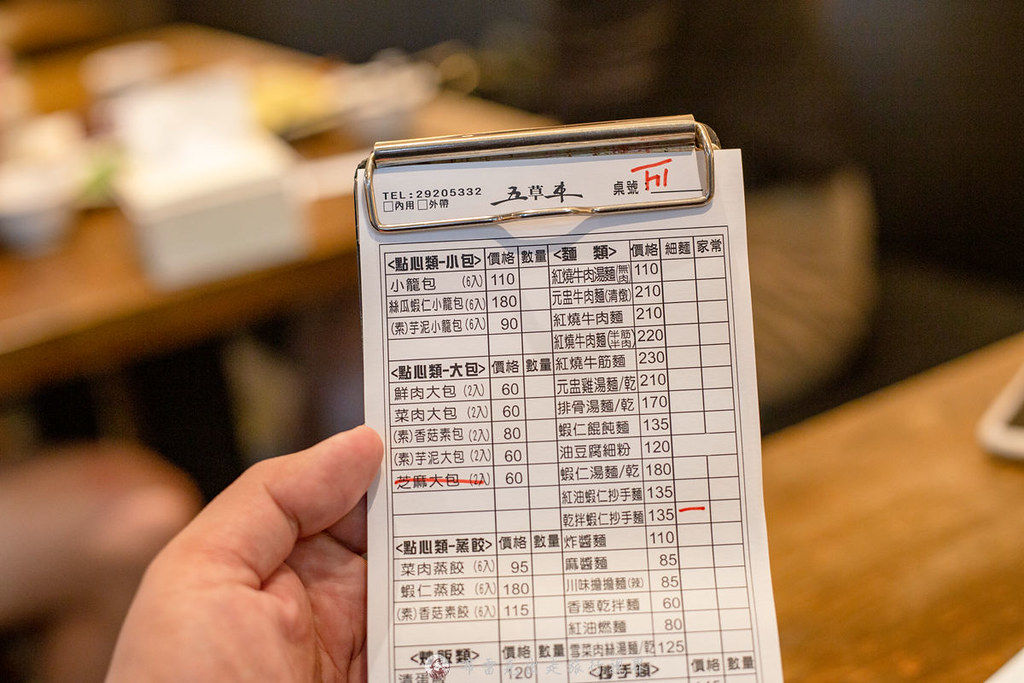 TEL:29205332
□內用□外帶
五草車
桌號
<點心類-小包> 價格 數量
小龍包 (6入) 110
絲瓜蝦仁小龍包(6入) 180
(素)芋泥小龍包(6入) 90
<點心類-大包> 價格 數量
鮮肉大包 (2入) 60
菜肉大包 (2入) 60
(素)香菇素包 (2入) 80
(素)芋泥大包 (2入) 60
芝麻大包 (2入) 60
<點心類-蒸餃> 價格 數量
菜肉蒸餃 (6入) 95
蝦仁蒸餃 (6入) 180
(素)香菇素餃 (6入) 115
<炒飯類> 價格 數量
120
<麵 類> 價格 細麵 家常
紅燒牛肉湯麵(無肉) 110
元盅牛肉麵(清燉) 210
紅燒牛肉麵 210
紅燒牛肉麵(半筋半肉) 220
紅燒牛筋麵 230
元盅雞湯麵/乾 210
排骨湯麵/乾 170
蝦仁餛飩麵 135
油豆腐細粉 120
蝦仁湯麵/乾 180
紅油蝦仁抄手麵 135
乾拌蝦仁抄手麵 135 一
炸醬麵 110
麻醬麵 85
川味擔擔麵(辣) 85
香蔥乾拌麵 60
紅油燃麵 80
雪菜肉絲湯麵/乾 125
<抄手類> 價格 數量